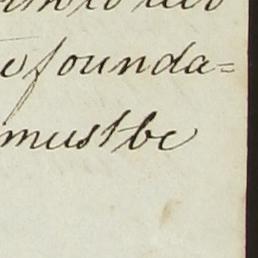 e founda=
must be